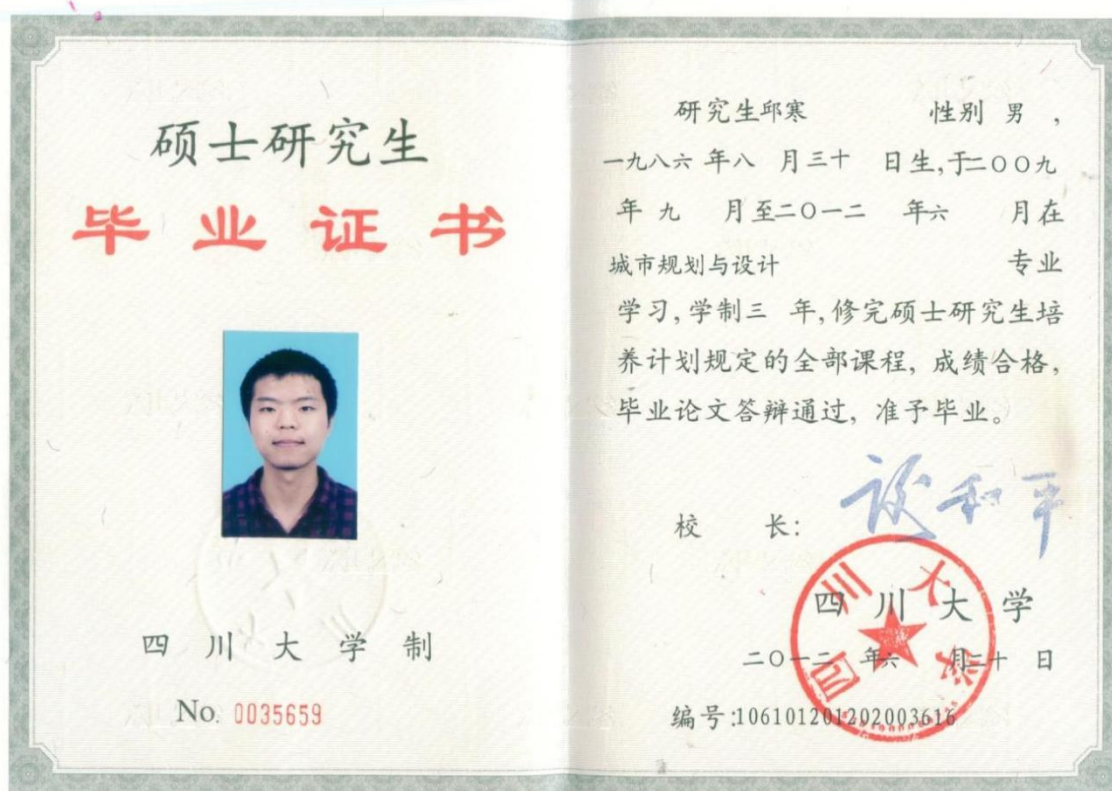 硕士研究生
毕业证书
四川大学制
No. 0035659
研究生邱寒 性别 男 ,
一九八六 年八 月三十 日生,于二〇〇九
年 九 月至二〇一二 年六 月在
城市规划与设计 专业
学习,学制三 年,修完硕士研究生培
养计划规定的全部课程, 成绩合格,
毕业论文答辩通过, 准予毕业。
校 长: 谢和平
四川大学
四 川 大 学
二〇一二 年六 月二十 日
编号:106101201202003616